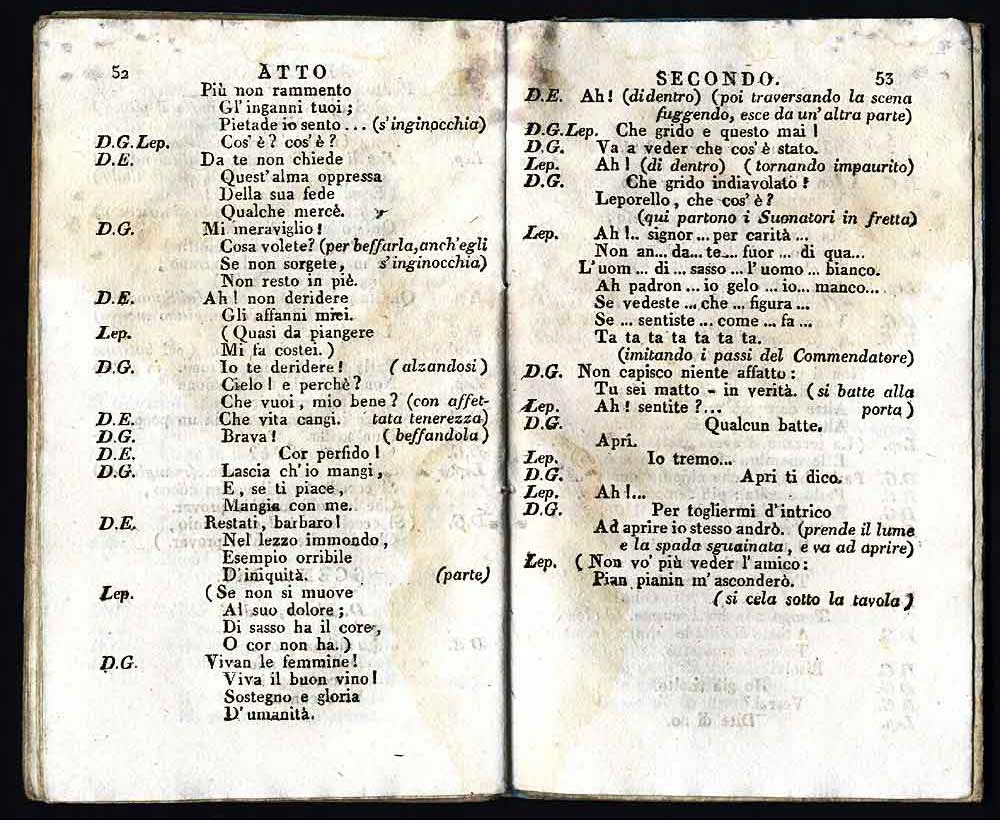 52 ATTO
Più non rammento
Gl' inganni tuoi;
Pietade io sento... (s'inginocchia)
D.G.Lep. Cos' è? cos' è?
D.E. Da te non chiede
Quest' alma oppressa
Della sua fede
Qualche mercè.
D.G. Mi meraviglio!
Cosa volete? (per beffarla, anch'egli
Se non sorgete, s'inginocchia)
Non resto in piè.
D.E. Ah! non deridere
Gli affanni miei.
Lep. (Quasi da piangere
Mi fa costei.)
D.G. Io te deridere! (alzandosi)
Cielo! e perchè?
Che vuoi, mio bene? (con affet-
D.E. Che vita cangi. tata tenerezza)
D.G. Brava! (beffandola)
D.E. Cor perfido!
D.G. Lascia ch' io mangi,
E, se ti piace,
Mangia con me.
D.E. Restati, barbaro!
Nel lezzo immondo,
Esempio orribile
D' iniquità. (parte)
Lep. (Se non si muove
Al suo dolore;
Di sasso ha il core,
O cor non ha.)
D.G. Vivan le femmine!
Viva il buon vino!
Sostegno e gloria
D' umanità.
SECONDO. 53
D.E. Ah! (di dentro) (poi traversando la scena
fuggendo, esce da un' altra parte)
D.G.Lep. Che grido e questo mai!
D.G. Va a veder che cos' è stato.
Lep. Ah! (di dentro) (tornando impaurito)
D.G. Che grido indiavolato!
Leporello, che cos' è?
(qui partono i Suonatori in fretta)
Lep. Ah!.. signor... per carità...
Non an... da... te... fuor... di qua...
L' uom... di... sasso... l' uomo... bianco.
Ah padron... io gelo... io... manco...
Se vedeste... che... figura...
Se... sentiste... come... fa...
Ta ta ta ta ta ta ta.
(imitando i passi del Commendatore)
D.G. Non capisco niente affatto:
Tu sei matto - in verità. (si batte alla
Lep. Ah! sentite?... porta)
D.G. Qualcun batte.
Apri.
Lep. Io tremo...
D.G. Apri ti dico.
Lep. Ah!...
D.G. Per togliermi d'intrico
Ad aprire io stesso andrò. (prende il lume
e la spada sguainata, e va ad aprire)
Lep. (Non vo' più veder l' amico:
Pian pianin m' asconderò.
(si cela sotto la tavola)